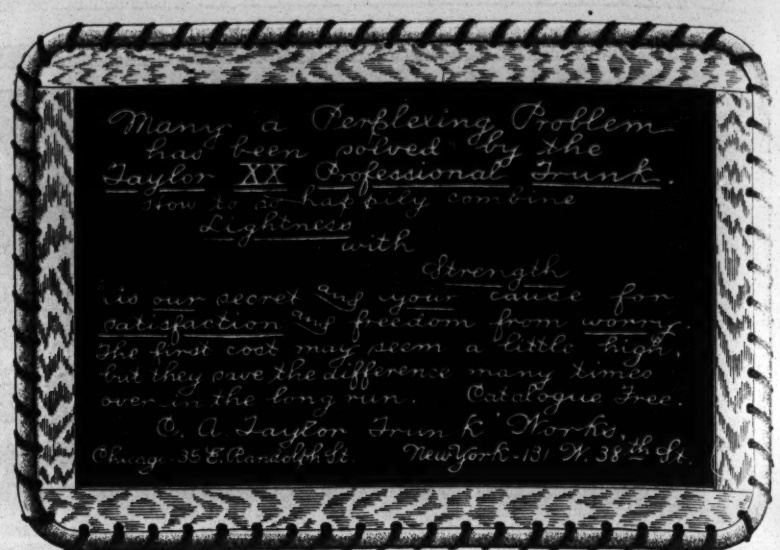 Many a Perplexing Problem
has been solved by the
Taylor XX Professional Trunk.
How to so happily combine
Lightness
with
Strength
is our secret and your cause for
satisfaction and freedom from worry.
The first cost may seem a little high,
but they save the difference many times
over in the long run. Catalogue Free.
C. A. Taylor Trunk Works,
Chicago-35 E. Randolph St. New York-131 W. 38th St.